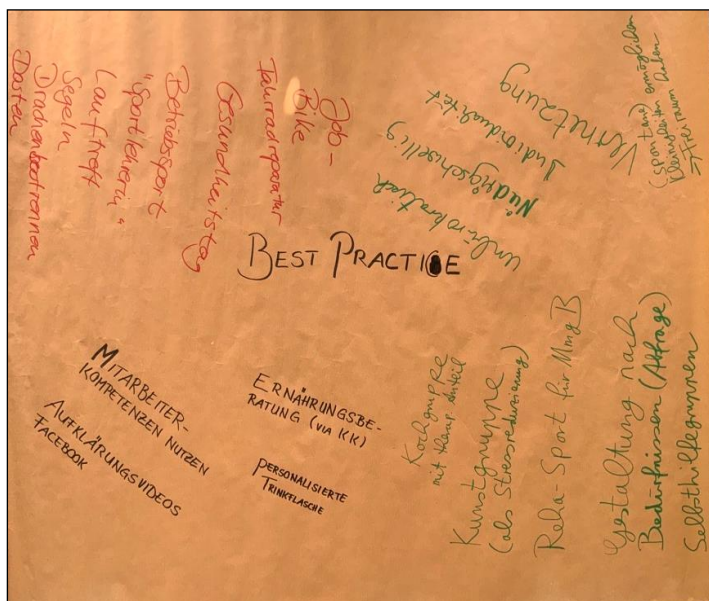 BEST PRACTICE
Job-
Bike
Fahrradreparatur
Gesundheitstag
Betriebssport
"Sportlehrerin"
Lauftreff
Segeln
Drachenbootrennen
Dosten
(spontane) ermöglichen
Kleinigkeiten haben
⇒ Freiraum
Vernetzung
Individualität
Niedrigschwellig
unbürokratisch
MITARBEITER-
KOMPETENZEN NUTZEN
AUFKLÄRUNGSVIDEOS
FACEBOOK
ERNÄHRUNGSBE-
RATUNG (VIA KK)
PERSONALISIERTE
TRINKFLASCHE
Kochgruppe
mit
Kunstgruppe
(als Stressreduzierung)
Reha-Sport für MmgB
Gestaltung nach
Bedürfnissen (Abfrage)
Selbsthilfegruppen